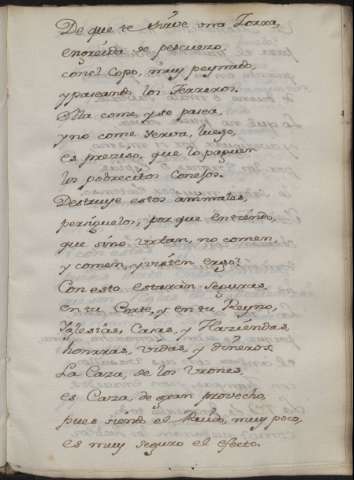 De que te sirve una Zorra,
engreida de pescuezo,
con el Copo, muy peynado,
y paseando los Terreros.
Ella come, y se pasea,
y no come Yerva, luego,
es preciso, que lo paguen
los pobrecitos conejos.
Destruye estos animales,
persiguelos, por que entiendo,
que sino urtan, no comen,
y comen, y visten ergo.
Con esto estarán seguras
en tu Corte, y en tu Reyno,
Yglesias, Casas, y Haziendas,
honrras, vidas, y dineros.
La Caza, de los
es Caza, de gran provecho,
pues siendo el Ruido, muy poco,
es muy seguro el efecto.